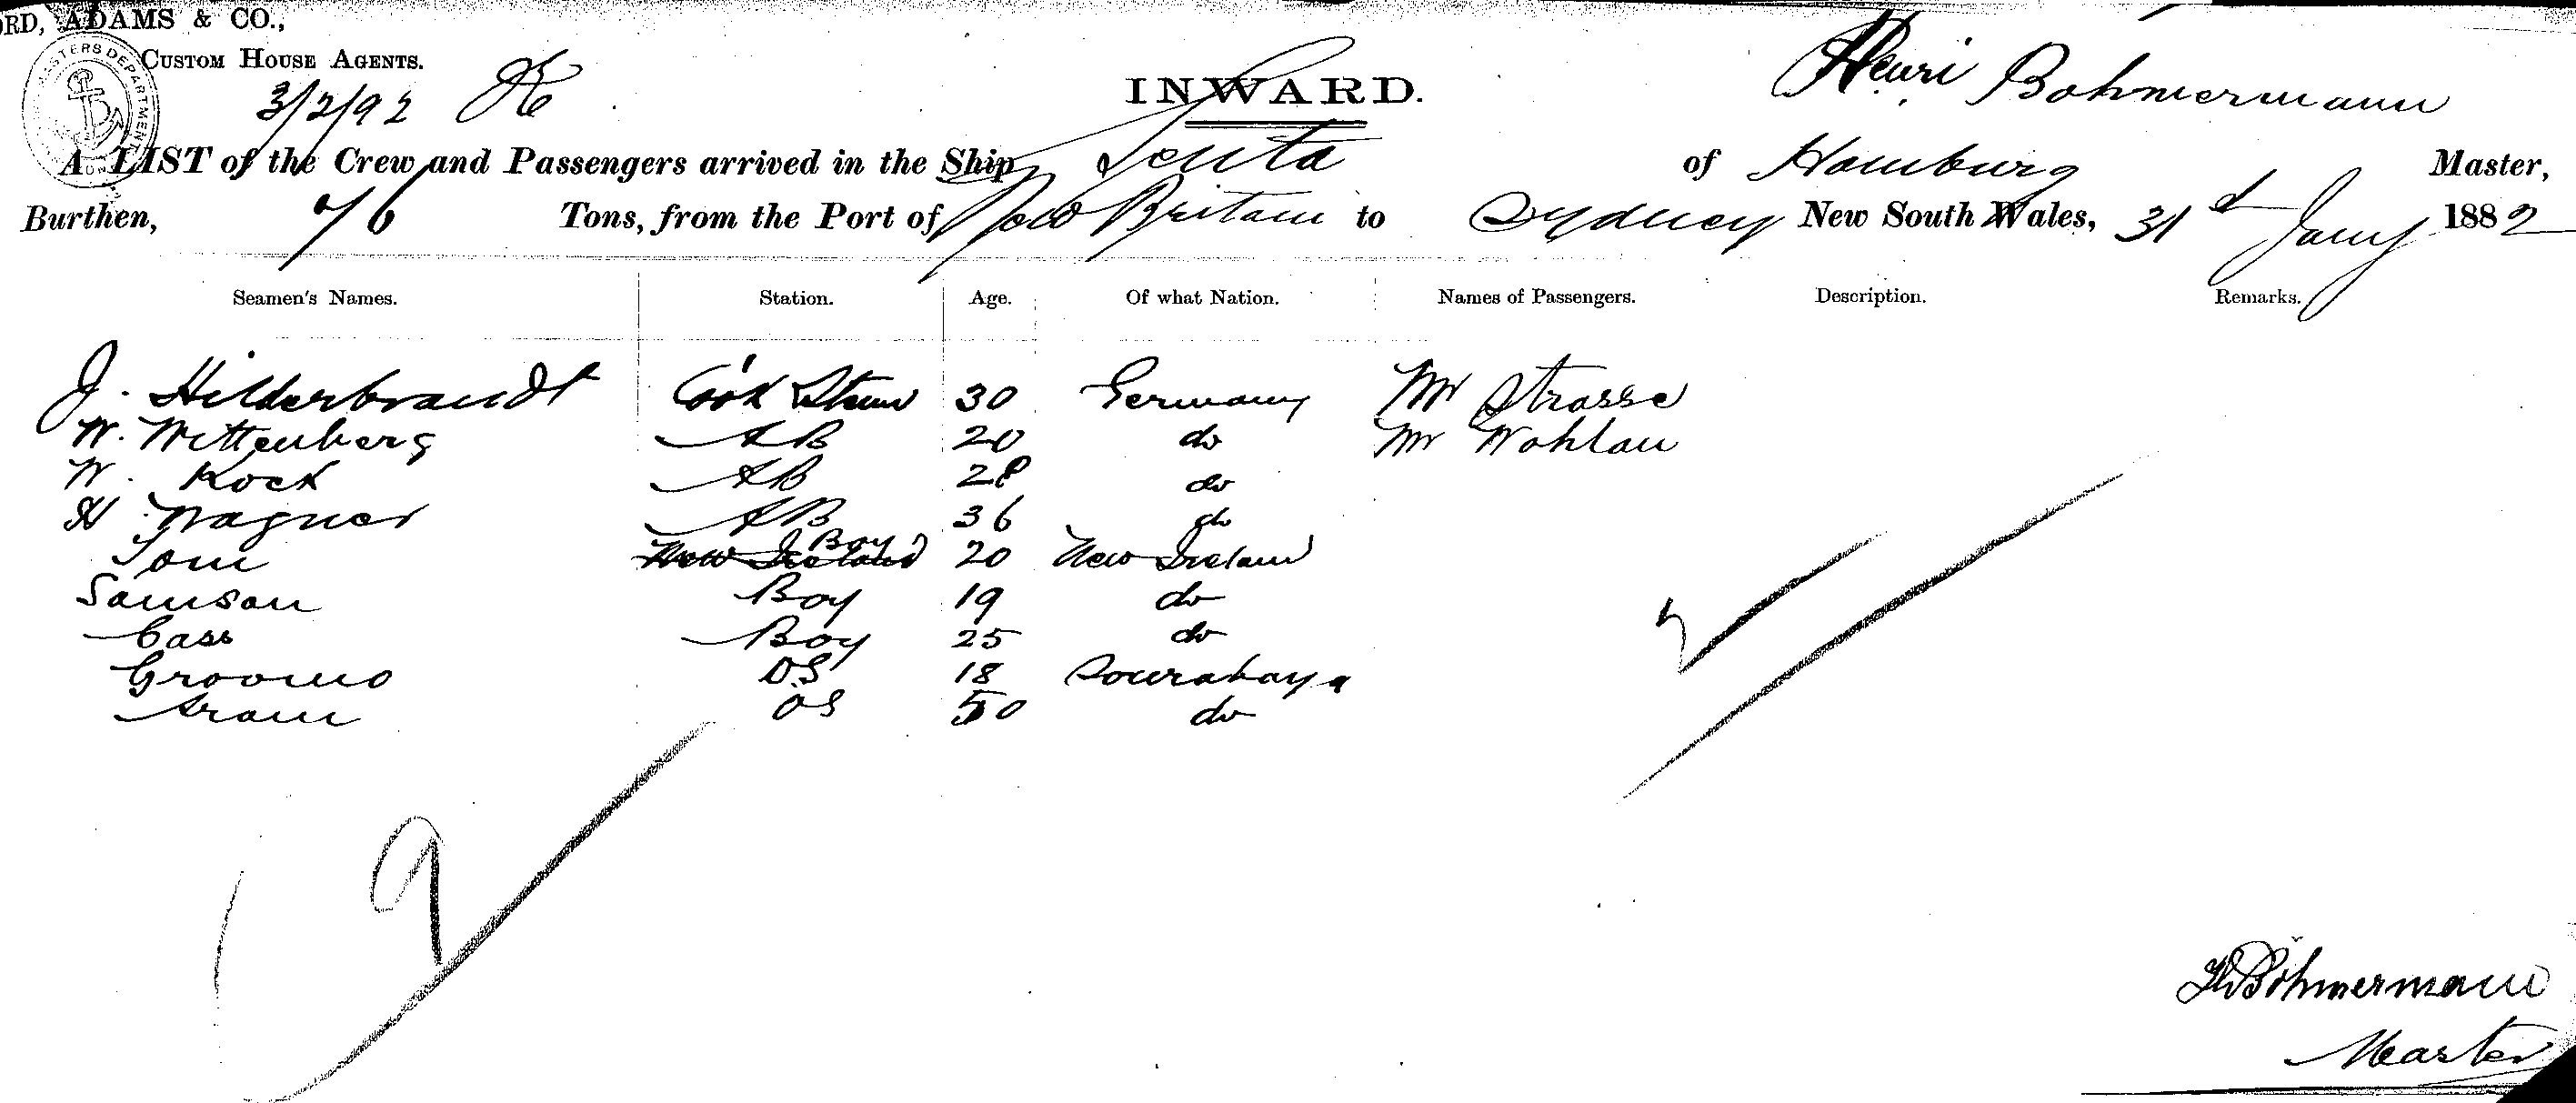 RD, ADAMS & CO.,
CUSTOM HOUSE AGENTS.
3/2/92
INWARD.
Henri Bohmermann
A LIST of the Crew and Passengers arrived in the Ship Senta of Hamburg Master,
Burthen, 76 Tons, from the Port of New Britain to Sydney New South Wales, 31st Jany 1882
Seamen's Names. Station. Age. Of what Nation. Names of Passengers. Description. Remarks.
J. Hilderbrandt Cook Stew 30 Germany Mr Strasse
W. Wittenberg AB 20 do Mr Wohlau
W. Koch AB 28 do
H Wagner AB 36 do
Tom New Ireland Boy 20 New Ireland
Samson Boy 19 do
Cass Boy 25 do
Groomo OS 18 Sourabaya
Aram OS 50 do
9
2
H Böhmermann
Master